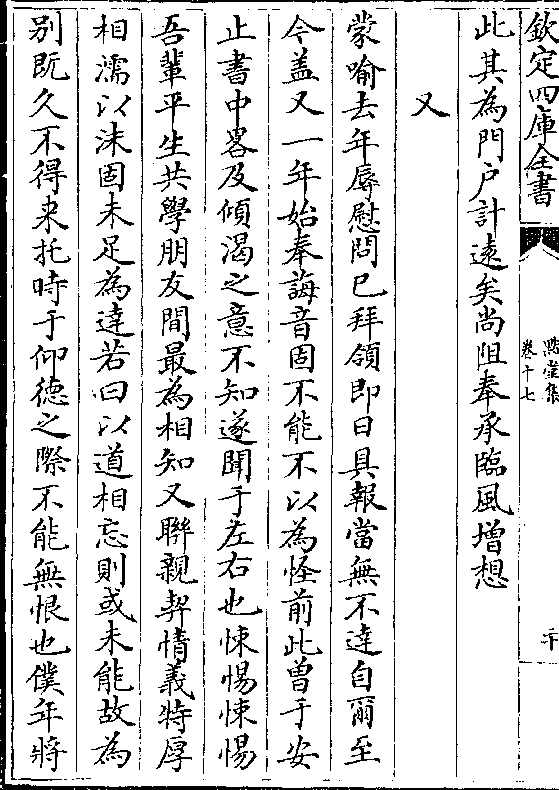 欽定四庫全書
點虛集
卷十七
二十
此其為門戶計遠矣尚阻奉承臨風增想
又
蒙喻去年辱慰問已拜領即日具報當無不達自爾至
今盖又一年始奉誨音固不能不以為怪前此曾于安
止書中畧及傾渴之意不知遂聞于左右也悚惕悚惕
吾輩平生共學朋友間最為相知又聯親契情義特厚
相濡以沫固未足為達若曰以道相忘則或未能故為
别既久不得来托時于仰德之際不能無恨也僕年將